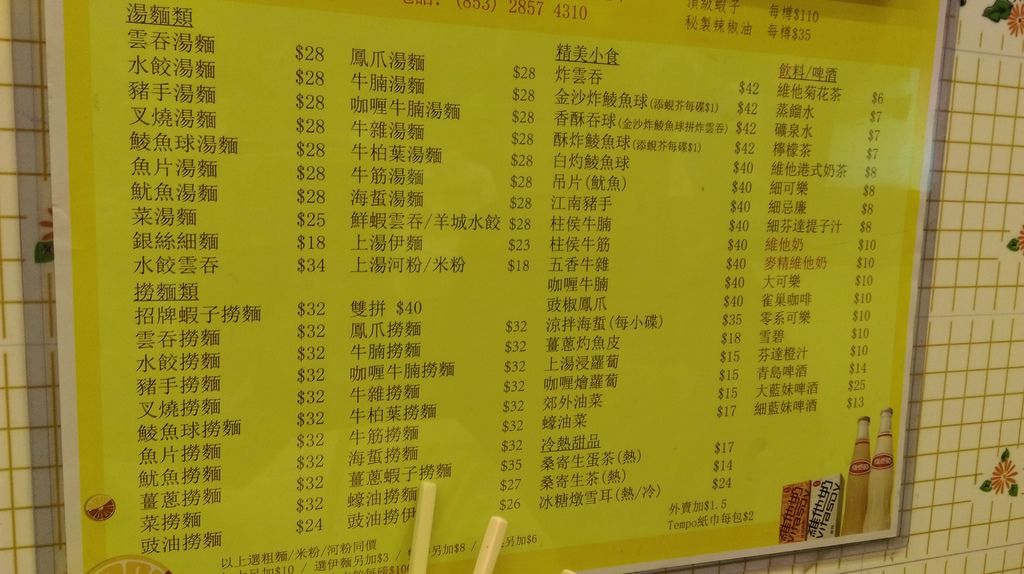 (853) 2857 4310
頂級蝦子 每樽$110
秘製辣椒油 每樽$35
湯麵類
雲吞湯麵 $28
水餃湯麵 $28
豬手湯麵 $28
叉燒湯麵 $28
鯪魚球湯麵 $28
魚片湯麵 $28
魷魚湯麵 $28
菜湯麵 $25
銀絲細麵 $18
水餃雲吞 $34
鳳爪湯麵 $28
牛腩湯麵 $28
咖喱牛腩湯麵 $28
牛雜湯麵 $28
牛柏葉湯麵 $28
牛筋湯麵 $28
海蜇湯麵 $28
鮮蝦雲吞/羊城水餃 $28
上湯伊麵 $23
上湯河粉/米粉 $18
撈麵類
招牌蝦子撈麵 $32
雲吞撈麵 $32
水餃撈麵 $32
豬手撈麵 $32
叉燒撈麵 $32
鯪魚球撈麵 $32
魚片撈麵 $32
魷魚撈麵 $32
薑蔥撈麵 $32
菜撈麵 $24
豉油撈麵
雙拼 $40
鳳爪撈麵 $32
牛腩撈麵 $32
咖喱牛腩撈麵 $32
牛雜撈麵 $32
牛柏葉撈麵 $32
牛筋撈麵 $32
海蜇撈麵 $32
薑蔥蝦子撈麵 $35
蠔油撈麵 $27
豉油撈伊 $26
精美小食
炸雲吞 $42
金沙炸鯪魚球(添蜆芥每碟$1) $42
香酥吞球(金沙炸鯪魚球拼炸雲吞) $42
酥炸鯪魚球(添蜆芥每碟$1) $42
白灼鯪魚球 $40
吊片(魷魚) $40
江南豬手 $40
柱侯牛腩 $40
柱侯牛筋 $40
五香牛雜 $40
咖喱牛腩 $40
豉椒鳳爪 $40
涼拌海蜇(每小碟) $35
薑蔥灼魚皮 $18
上湯浸蘿蔔 $15
咖喱燴蘿蔔 $15
郊外油菜 $15
蠔油菜 $17
冷熱甜品
桑寄生蛋茶(熱) $17
桑寄生茶(熱) $14
冰糖燉雪耳(熱/冷) $24
飲料/啤酒
維他菊花茶 $6
蒸餾水 $7
礦泉水 $7
檸檬茶 $7
維他港式奶茶 $8
細可樂 $8
細忌廉 $8
細芬達提子汁 $8
維他奶 $10
麥精維他奶 $10
大可樂 $10
雀巢咖啡 $10
零系可樂 $10
雪碧 $10
芬達橙汁 $10
青島啤酒 $14
大藍妹啤酒 $25
細藍妹啤酒 $13
外賣加$1.5
Tempo紙巾每包$2
以上選粗麵/米粉/河粉同價
另加$10 / 選伊麵另加$3 / 另加$8 / 另加$6
維他奶
VITASOY